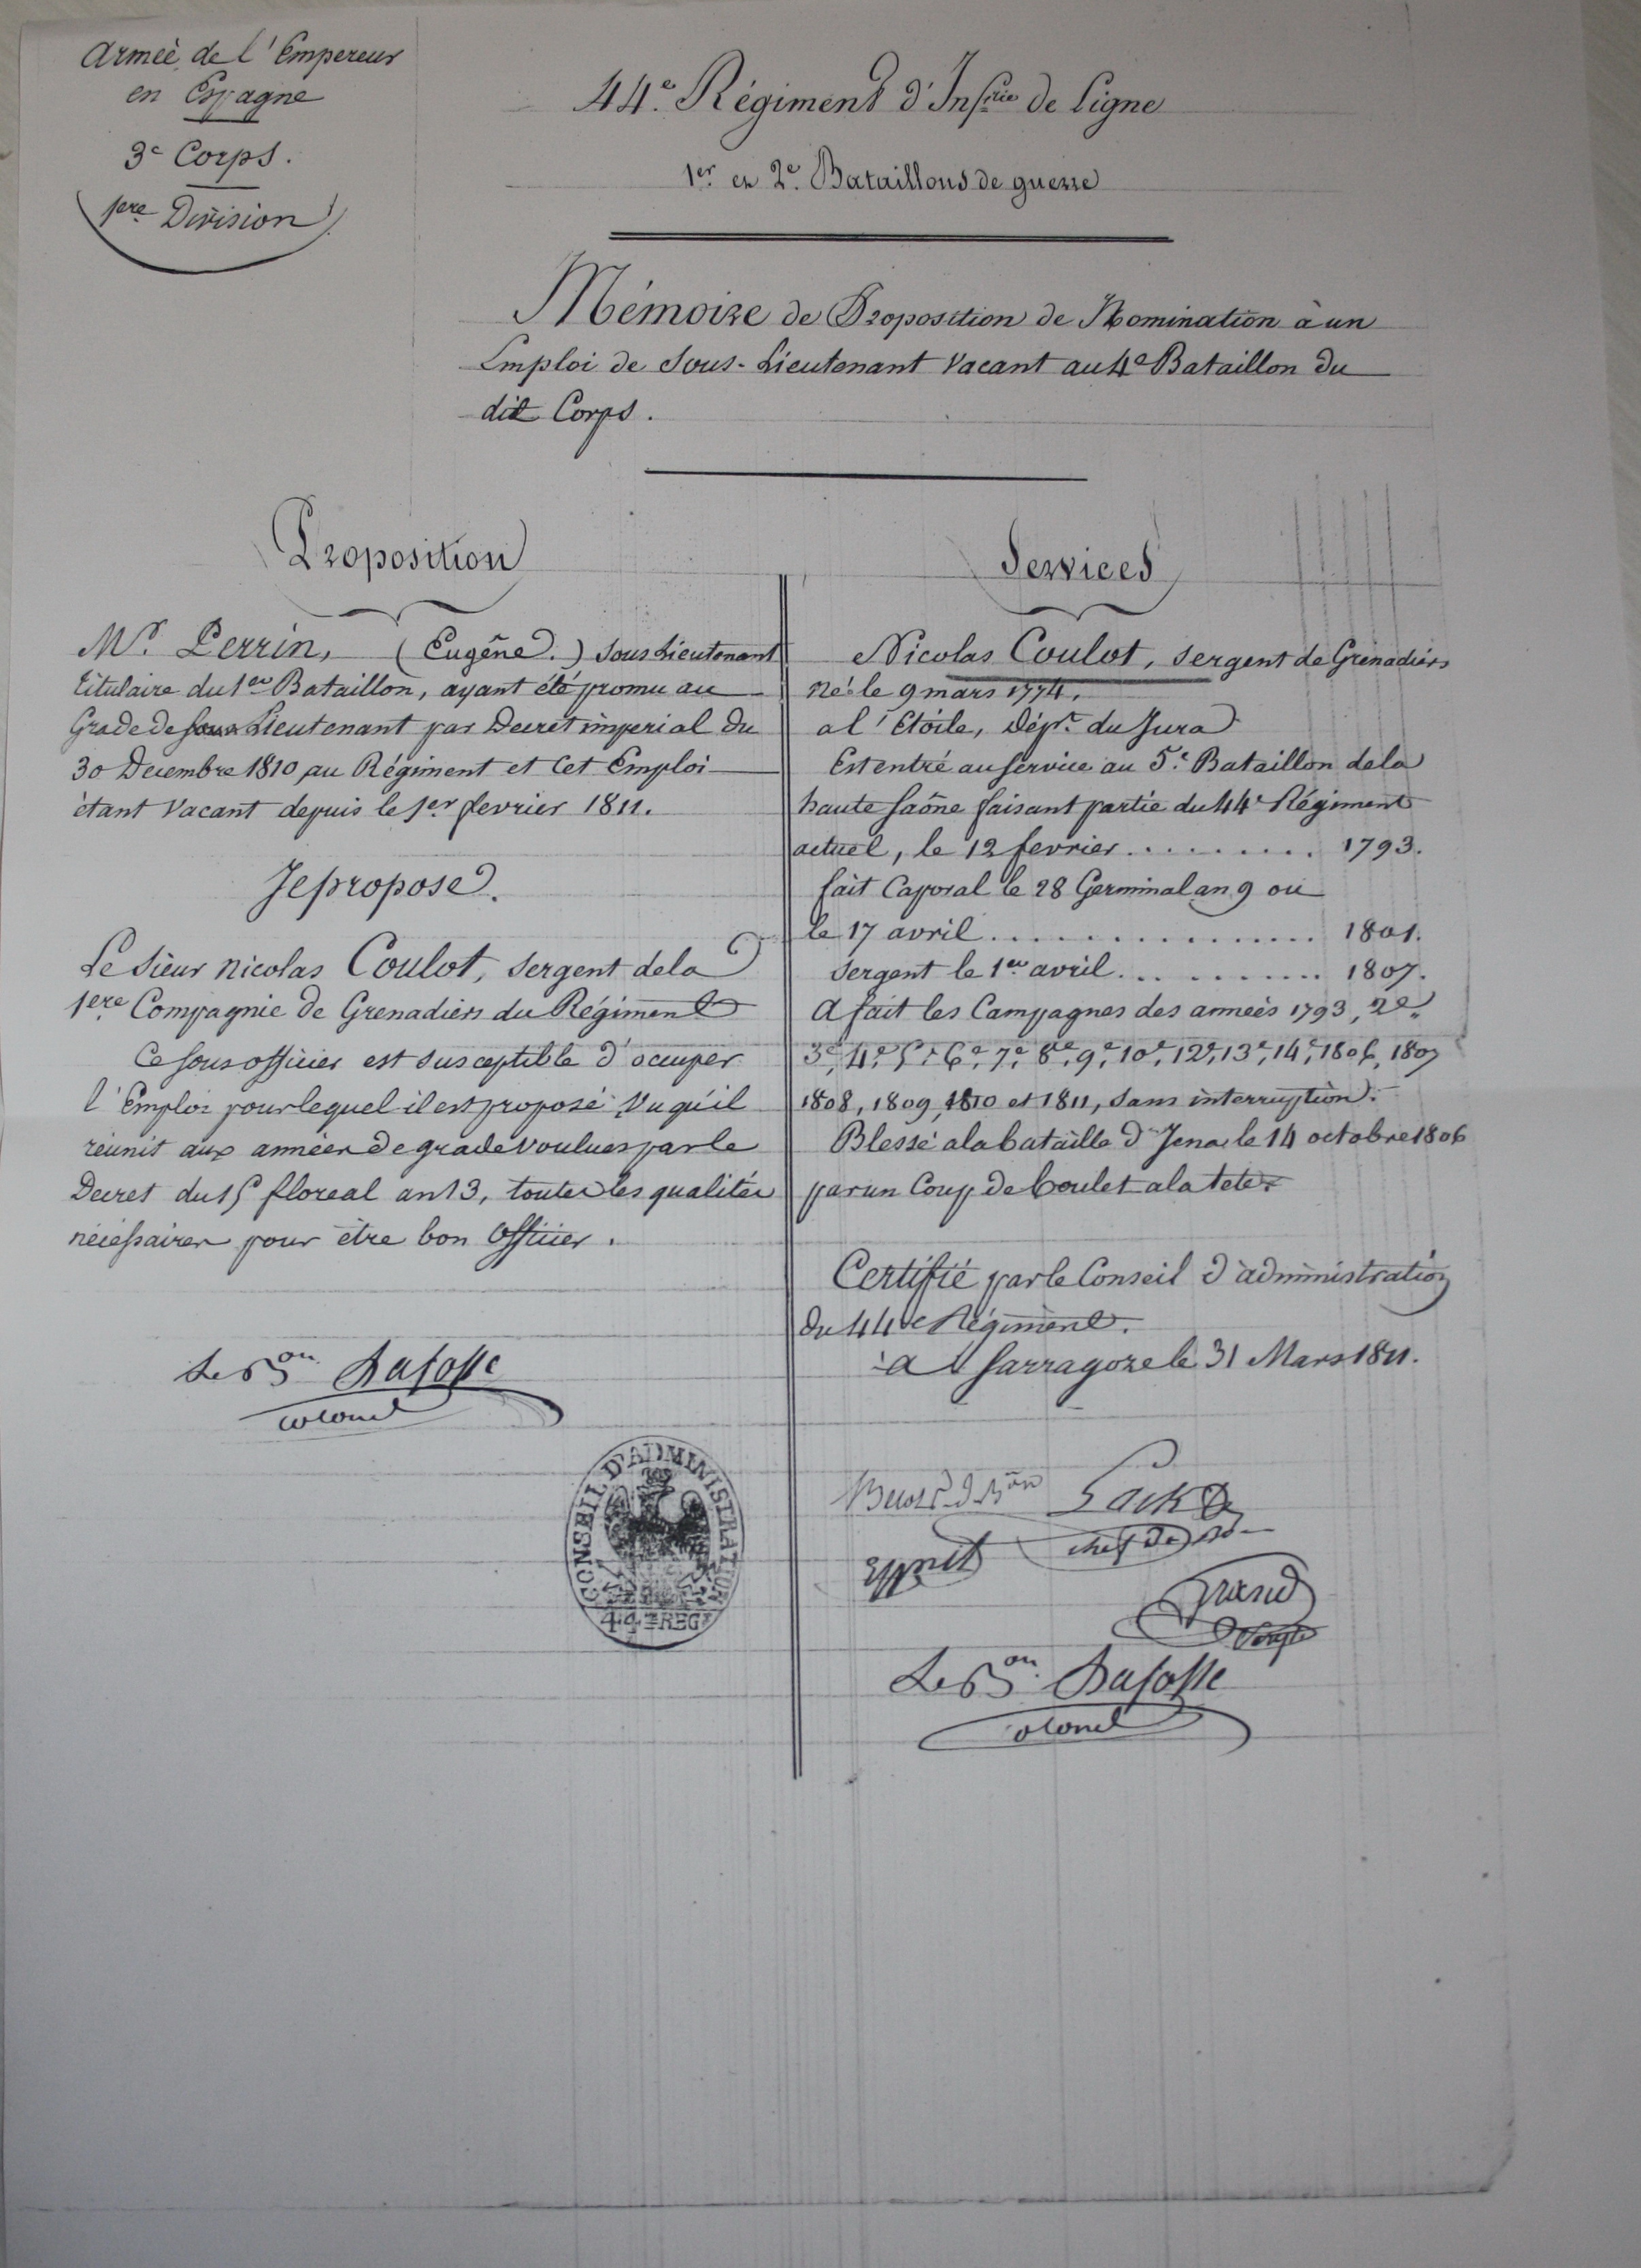 Armeé de l'Empereur
en Espagne
3e Corps.
1ere Division
44e. Régiment d'Infrie de Ligne
1er. et 2e. Bataillons de guerre
Mémoire de Proposition de Nomination à un
Emploi de Sous-Lieutenant Vacant au 4e Bataillon du
dit Corps.
Proposition
Mr. Perrin, (Eugêne.) Sous Lieutenant
titulaire du 1er Bataillon, ayant été promu au
Grade de Lieutenant par Decret imperial du
30 Decembre 1810 au Régiment et Cet Emploi
étant Vacant depuis le 1er fevrier 1811.
Je propose.
Le Sieur Nicolas Coulot, Sergent de la
1ere Compagnie de Grenadiers du Régiment
Ce Sous officier est susceptible d'occuper
l'Emploi pour lequel il est proposé Vu qu'il
réunit aux années de grade voulues par le
Decret du 15 floreal an 13, toutes les qualités
nécessaires pour être bon Officier.
Le Bon. Lafosse
Colonel
CONSEIL D'ADMINISTRATION
44me REGt
Services
Nicolas Coulot, Sergent de Grenadiers
Né le 9 mars 1774,
a l'Etoile, Dépt. du Jura
Est entré au Service au 5e. Bataillon de la
haute Saône faisant partie du 44e Régiment
actuel, le 12 fevrier . . . . . . . . . 1793.
fait Caporal le 28 Germinal an 9 ou
le 17 avril . . . . . . . . . . . . . . . . . 1801.
Sergent le 1er avril . . . . . . . . . . . 1807.
A fait les Campagnes des anneés 1793, 2e.
3e, 4e, 5e, 6e, 7e, 8e, 9e, 10e, 12e, 13e, 14e, 1806, 1807
1808, 1809, 1810 et 1811, Sans interruption.
Blessé a la bataille d'Jena le 14 octobre 1806
par un Coup de boulet a la tete.
Certifié par le Conseil d'administration
du 44e Régiment.
à Sarragoze le 31 Mars 1811.
chef de Bon
Grand
Le Bon. Lafosse
Colonel